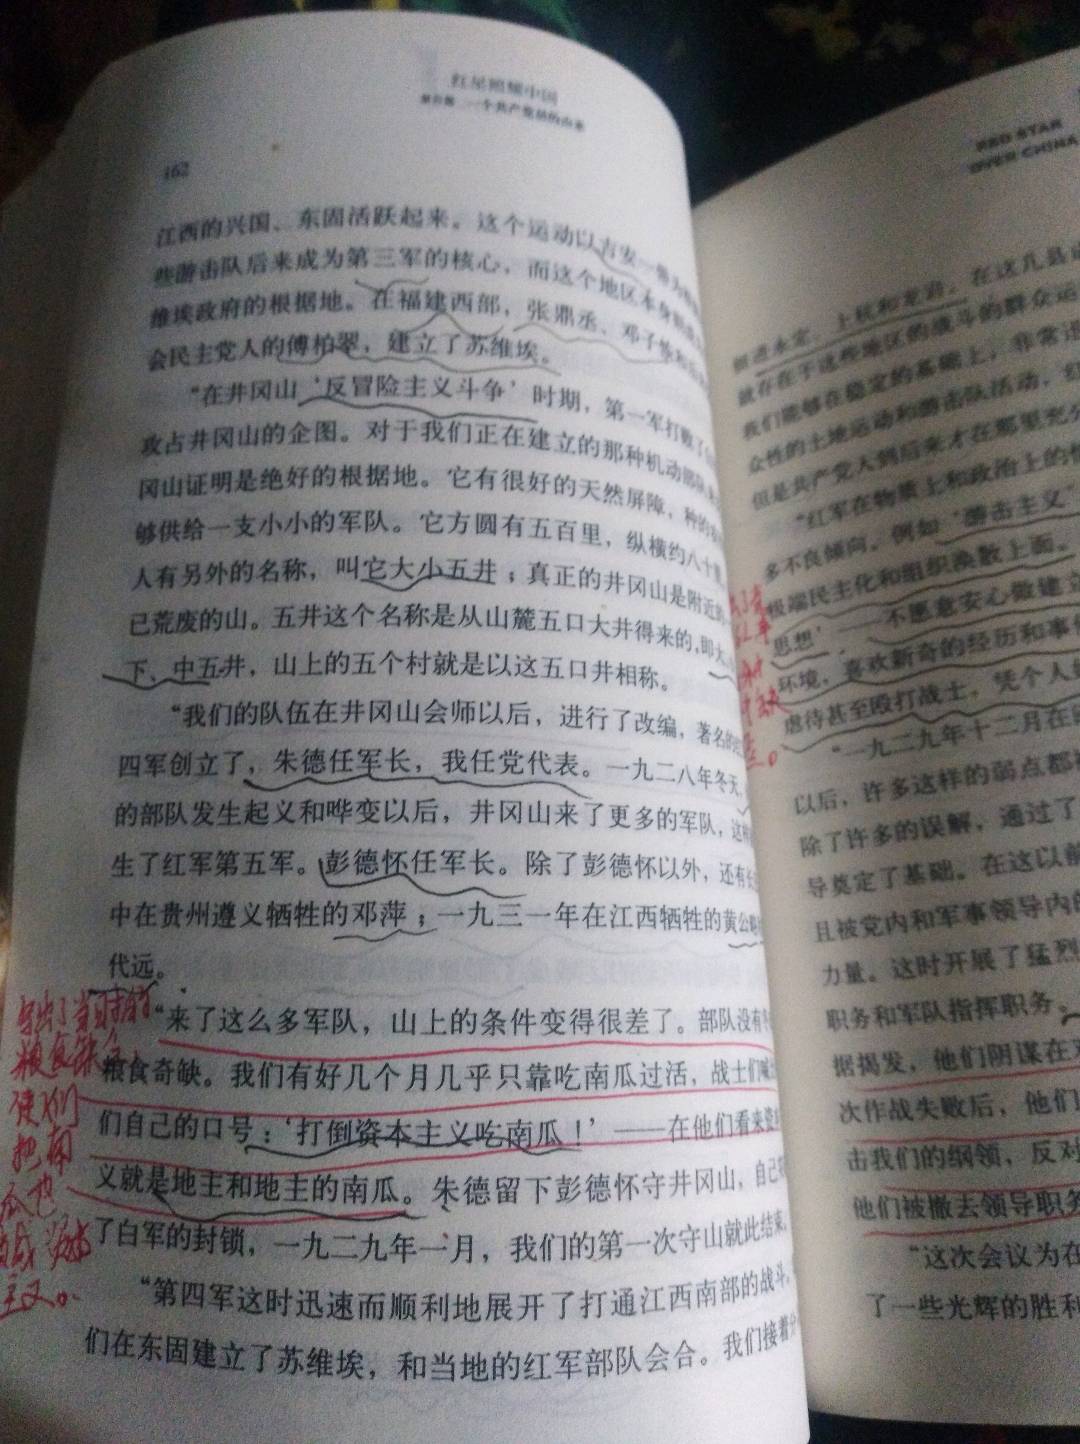 红星照耀中国
第四篇 一个共产党员的由来
162
江西的兴国、东固活跃起来。这个运动以吉安一带为
些游击队后来成为第三军的核心，而这个地区本身则成
维埃政府的根据地。在福建西部，张鼎丞、邓子恢和
会民主党人的傅柏翠，建立了苏维埃。
“在井冈山‘反冒险主义斗争’时期，第一军打败了
攻占井冈山的企图。对于我们正在建立的那种机动部队
冈山证明是绝好的根据地。它有很好的天然屏障，种的
够供给一支小小的军队。它方圆有五百里，纵横约八十里
人有另外的名称，叫它大小五井；真正的井冈山是附近的
已荒废的山。五井这个名称是从山麓五口大井得来的，即大、
下、中五井，山上的五个村就是以这五口井相称。
“我们的队伍在井冈山会师以后，进行了改编，著名的
四军创立了，朱德任军长，我任党代表。一九二八年冬天，
的部队发生起义和哗变以后，井冈山来了更多的军队，这样
生了红军第五军。彭德怀任军长。除了彭德怀以外，还有长
中在贵州遵义牺牲的邓萍；一九三一年在江西牺牲的黄公略
代远。
“来了这么多军队，山上的条件变得很差了。部队没有
粮食奇缺。我们有好几个月几乎只靠吃南瓜过活，战士们喊
们自己的口号：‘打倒资本主义吃南瓜！’——在他们看来资本
义就是地主和地主的南瓜。朱德留下彭德怀守井冈山，自己
了白军的封锁，一九二九年一月，我们的第一次守山就此结束。
“第四军这时迅速而顺利地展开了打通江西南部的战斗。
们在东固建立了苏维埃，和当地的红军部队会合。我们接着分
写出了当时的
粮食缺乏，
使人们
把南
瓜也
主义。
RED STAR
OVER CHINA
挺进永定、上杭和龙岩。在这几县
就存在于这些地区的战斗的群众运
我们能够在稳定的基础上，非常迅
众性的土地运动和游击队活动，红
但是共产党人到后来才在那里充分
“红军在物质上和政治上的情
多不良倾向。例如‘游击主义’
极端民主化和组织涣散上面。
思想’——不愿意安心做建立
环境，喜欢新奇的经历和事
虐待甚至殴打战士，凭个人
“一九二九年十二月在
以后，许多这样的弱点都
除了许多的误解，通过了
导奠定了基础。在这以前
且被党内和军事领导内的
力量。这时开展了猛烈
职务和军队指挥职务。
据揭发，他们阴谋在
次作战失败后，他们
击我们的纲领，反对
他们被撤去领导职务
“这次会议为在
了一些光辉的胜利